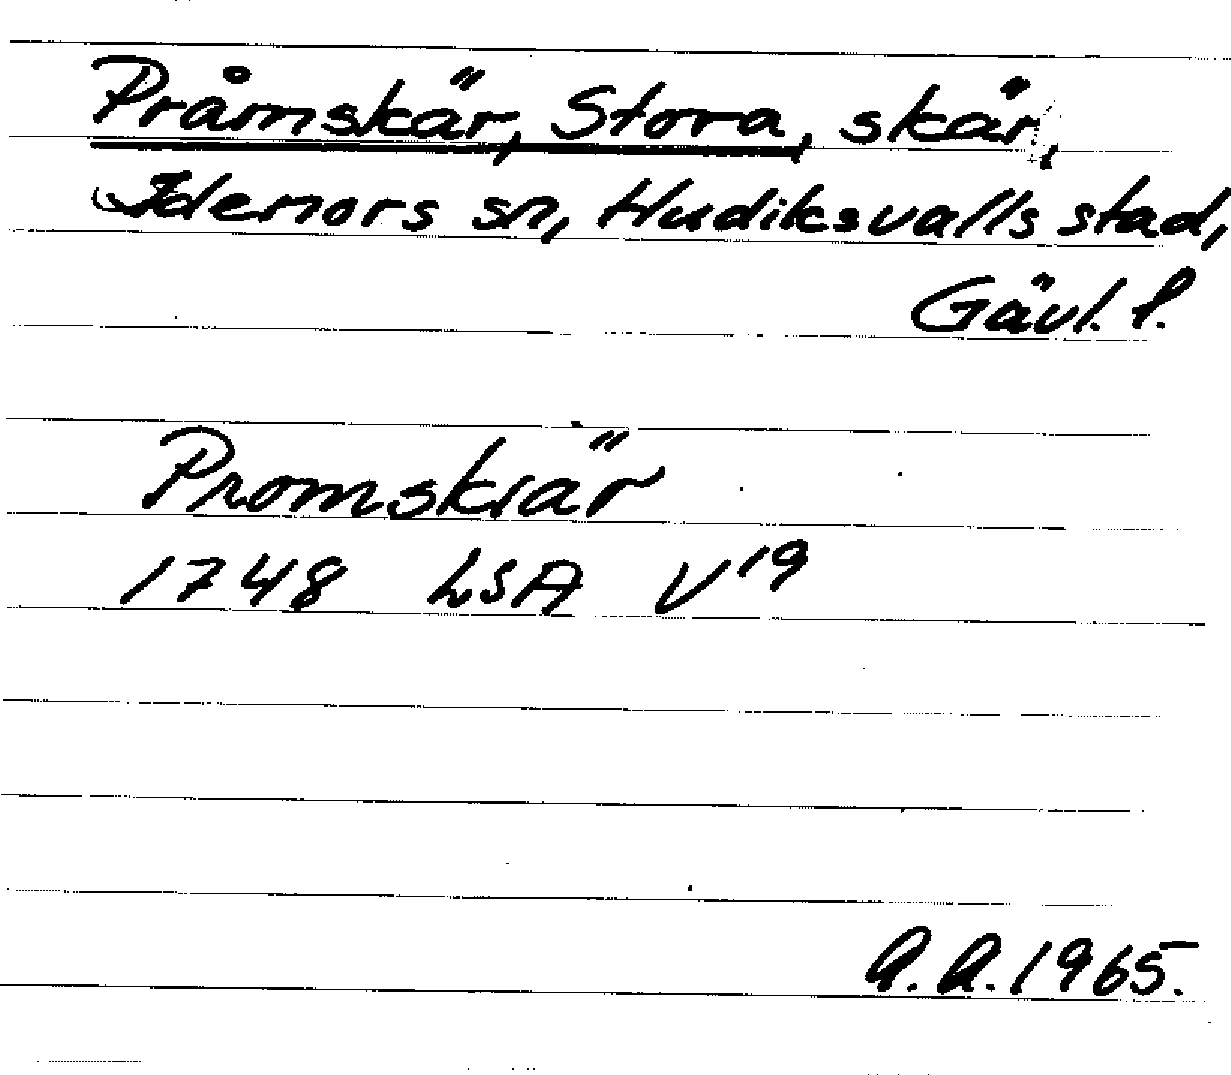 Pråmskär, Stora, skär,
Idenors sn, Hudiksvalls stad,
Gävl. l.
Promskiär
1748 LSA V19
A.A. 1965.